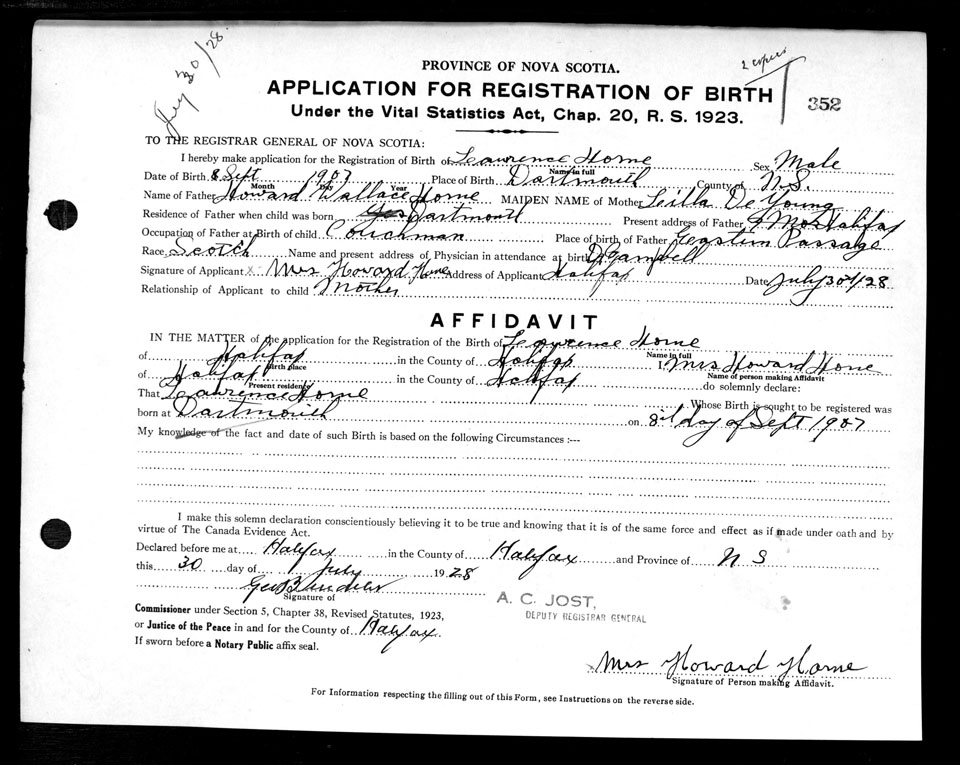 July 30/28
2 copies
PROVINCE OF NOVA SCOTIA.
APPLICATION FOR REGISTRATION OF BIRTH
352
Under the Vital Statistics Act, Chap. 20, R. S. 1923.
TO THE REGISTRAR GENERAL OF NOVA SCOTIA:
I hereby make application for the Registration of Birth of Lawrence Horne Sex Male
Name in full
Date of Birth 8 Sept 1907 Place of Birth Dartmouth County of N.S.
Month Day Year
Name of Father Howard Wallace Horne MAIDEN NAME of Mother Leilla De Young
Residence of Father when child was born Dartmouth Present address of Father Halifax
Occupation of Father at Birth of child Coachman Place of birth of Father Eastern Passage
Race Scotch Name and present address of Physician in attendance at birth Dr
Signature of Applicant x Mrs Howard Horne Address of Applicant Halifax Date July 30th/28
Relationship of Applicant to child Mother
AFFIDAVIT
IN THE MATTER of the application for the Registration of the Birth of Lawrence Horne
Name in full
of Halifax in the County of Halifax I, Mrs Howard Horne
Birth place Name of person making Affidavit
of Halifax in the County of Halifax do solemnly declare:
Present residence
That Lawrence Horne Whose Birth is sought to be registered was
born at Dartmouth on 8th day of Sept 1907
My knowledge of the fact and date of such Birth is based on the following Circumstances :—
I make this solemn declaration conscientiously believing it to be true and knowing that it is of the same force and effect as if made under oath and by
virtue of The Canada Evidence Act.
Declared before me at Halifax in the County of Halifax and Province of N S
this 30 day of July 1928
Signature of
A. C. JOST,
DEPUTY REGISTRAR GENERAL
Commissioner under Section 5, Chapter 38, Revised Statutes, 1923,
or Justice of the Peace in and for the County of Halifax.
If sworn before a Notary Public affix seal.
Mrs Howard Horne
Signature of Person making Affidavit.
For Information respecting the filling out of this Form, see Instructions on the reverse side.